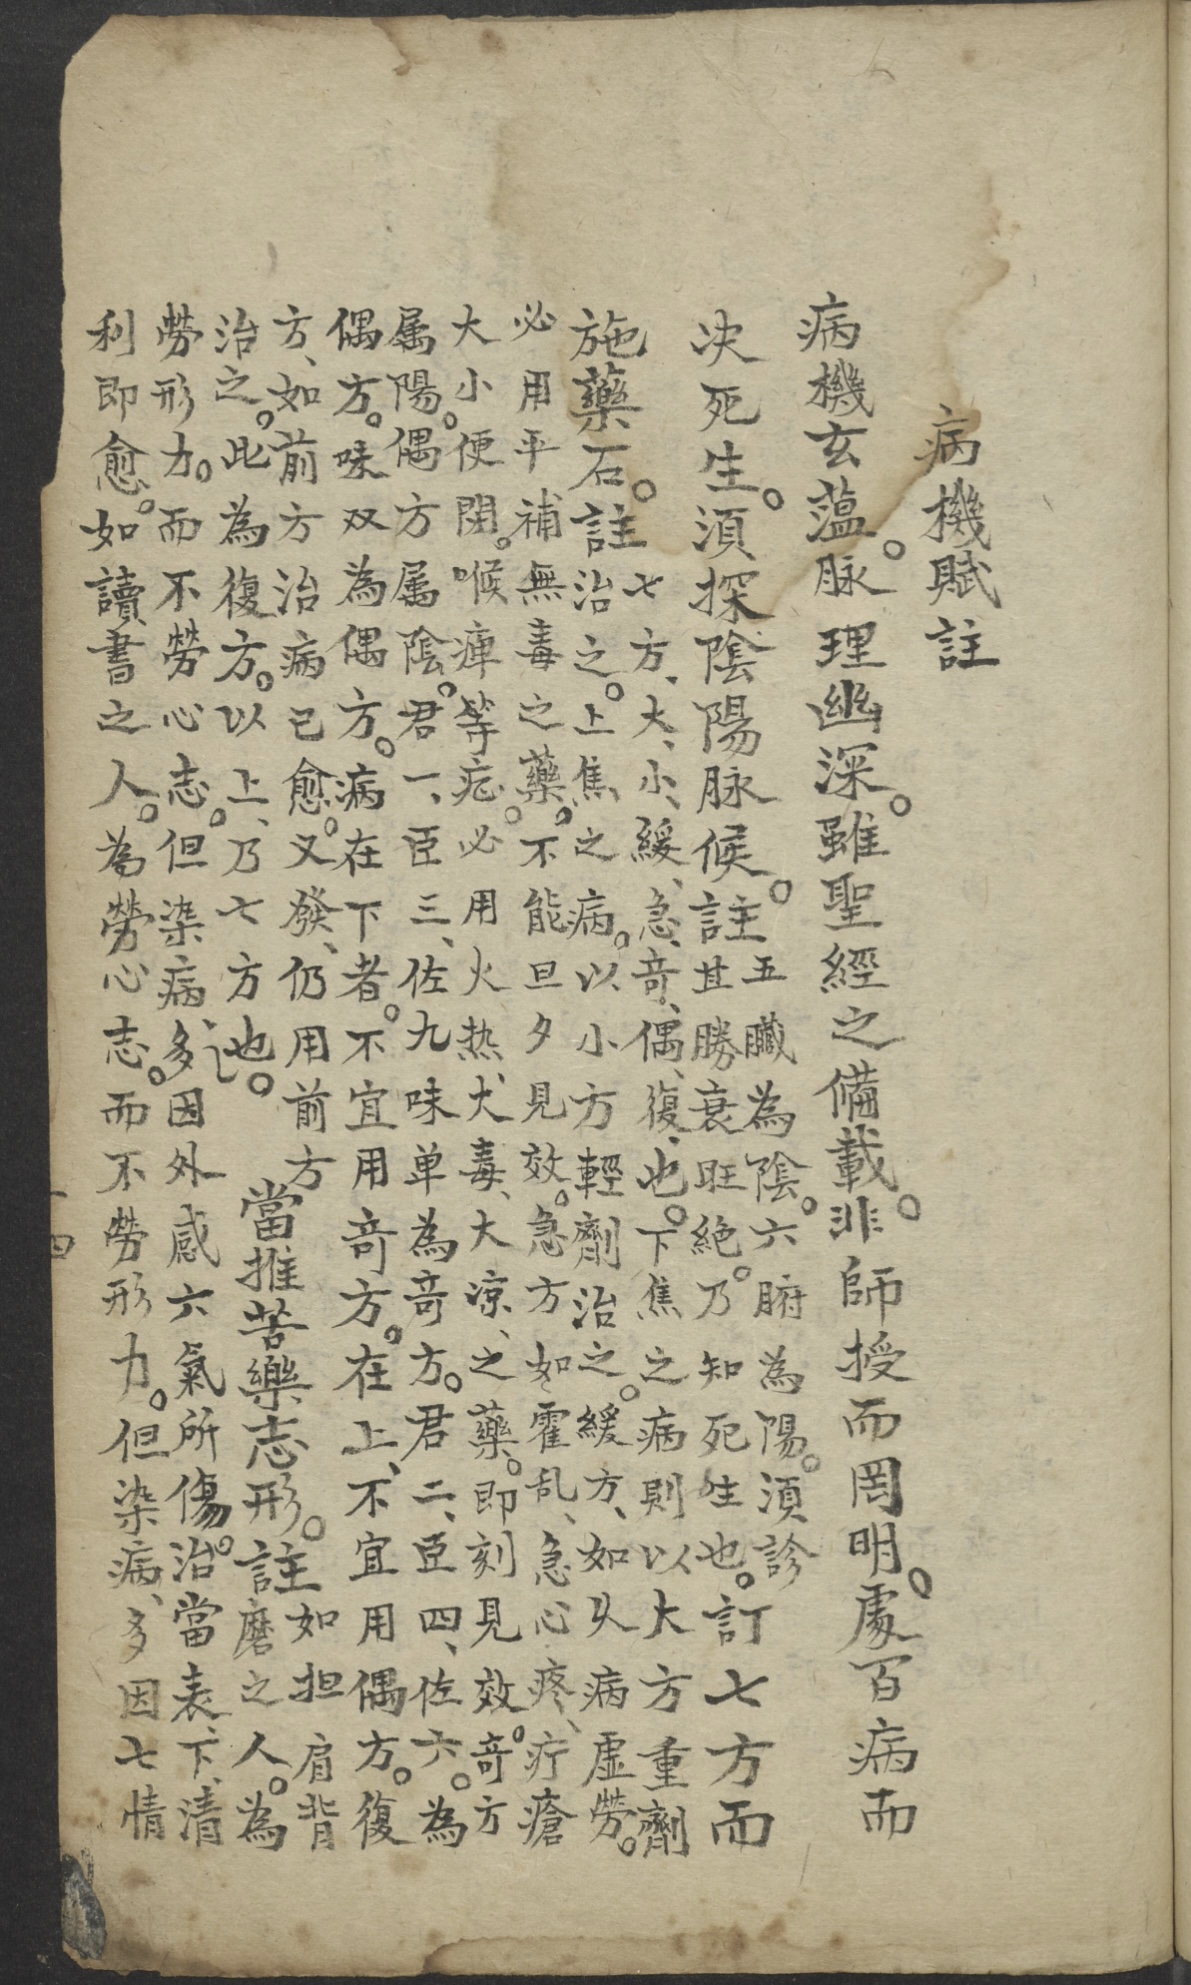 病機賦註
病機玄蘊。脉理幽深。雖聖經之備載。非師授而罔明。處百病而
决死生。須探陰陽脉候。註
五臟為陰。六腑為陽。須診
其勝衰旺絶。乃知死生也。
訂七方而
施藥石。註
七方、大、小、緩、急、竒、偶、復、也。下焦之病則以大方重劑
治之。上焦之病。以小方輕劑治之。緩方、如久病虚勞。
必用平補無毒之藥。不能旦夕見效。急方如霍乱、急心疼、疔瘡
大小便閉。喉痺等症。必用火热、大毒、大凉、之藥。即刻見效。竒方
属陽。偶方属陰。君一、臣三、佐九味单為竒方。君二、臣四、佐六。為
偶方。味双為偶方。病在下者。不宜用竒方。在上、不宜用偶方。復
方、如前方治病已愈。又發、仍用前方
治之。此為復方。以上、乃七方也。
當推苦樂志形。註
如担肩背
磨之人。為
勞形力。而不勞心志。但染病、多因外感六氣所傷。治當表、下、清
利即愈。如讀書之人。為勞心志。而不勞形力。但染病、多因七情